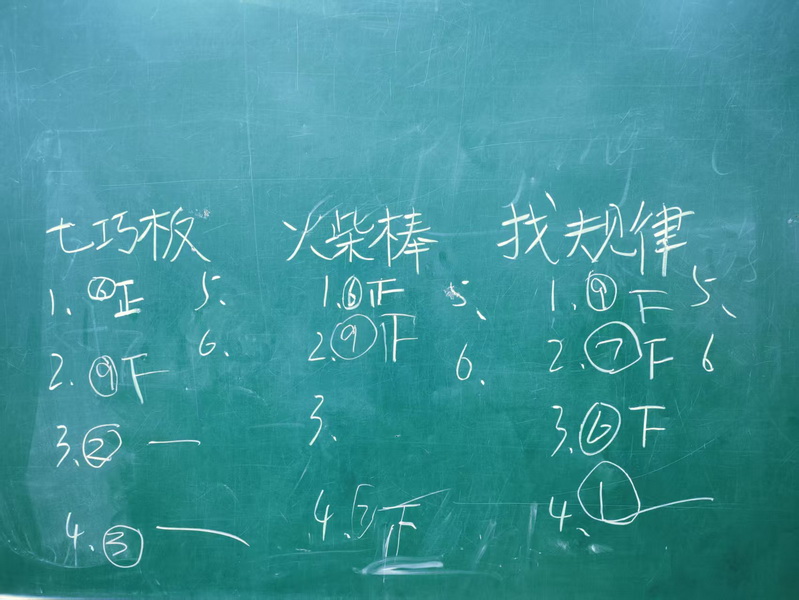 七巧板 火柴棒 找规律
1. ⑥ 正 5. 1. ⑥ 正 5、 1. ⑨ 下 5、
2. ⑨ 下 6. 2. ⑨ 正 6. 2. ⑦ 下 6
3. ② 一 3. 3. ⑥ 下
4. ③ 一 4. 正 4. ① 一